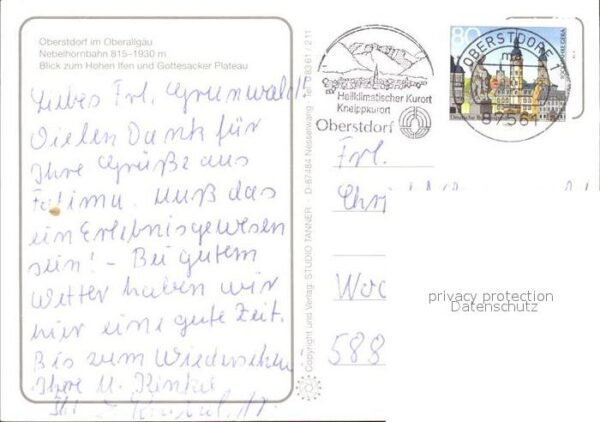 Oberstdorf im Oberallgäu
Nebelhornbahn 815-1930 m
Blick zum Hohen Ifen und Gottesacker Plateau
Liebes Frl. Grunwald!
Vielen Dank für
Ihre Grüße aus
Fatima. Muß das
ein Erlebnis gewesen
sein! - Bei gutem
Wetter haben wir
hier eine gute Zeit.
Bis zum Wiedersehen
Ihre
Ihr
Copyright und Verlag: STUDIO TANNER · D-87484 Nesselwang · Tel. 0 83 61 / 2 11
Heilklimatischer Kurort
Kneippkurort
Oberstdorf
80
OBERSTDORF 1
87561
Frl.
588
privacy protection
Datenschutz